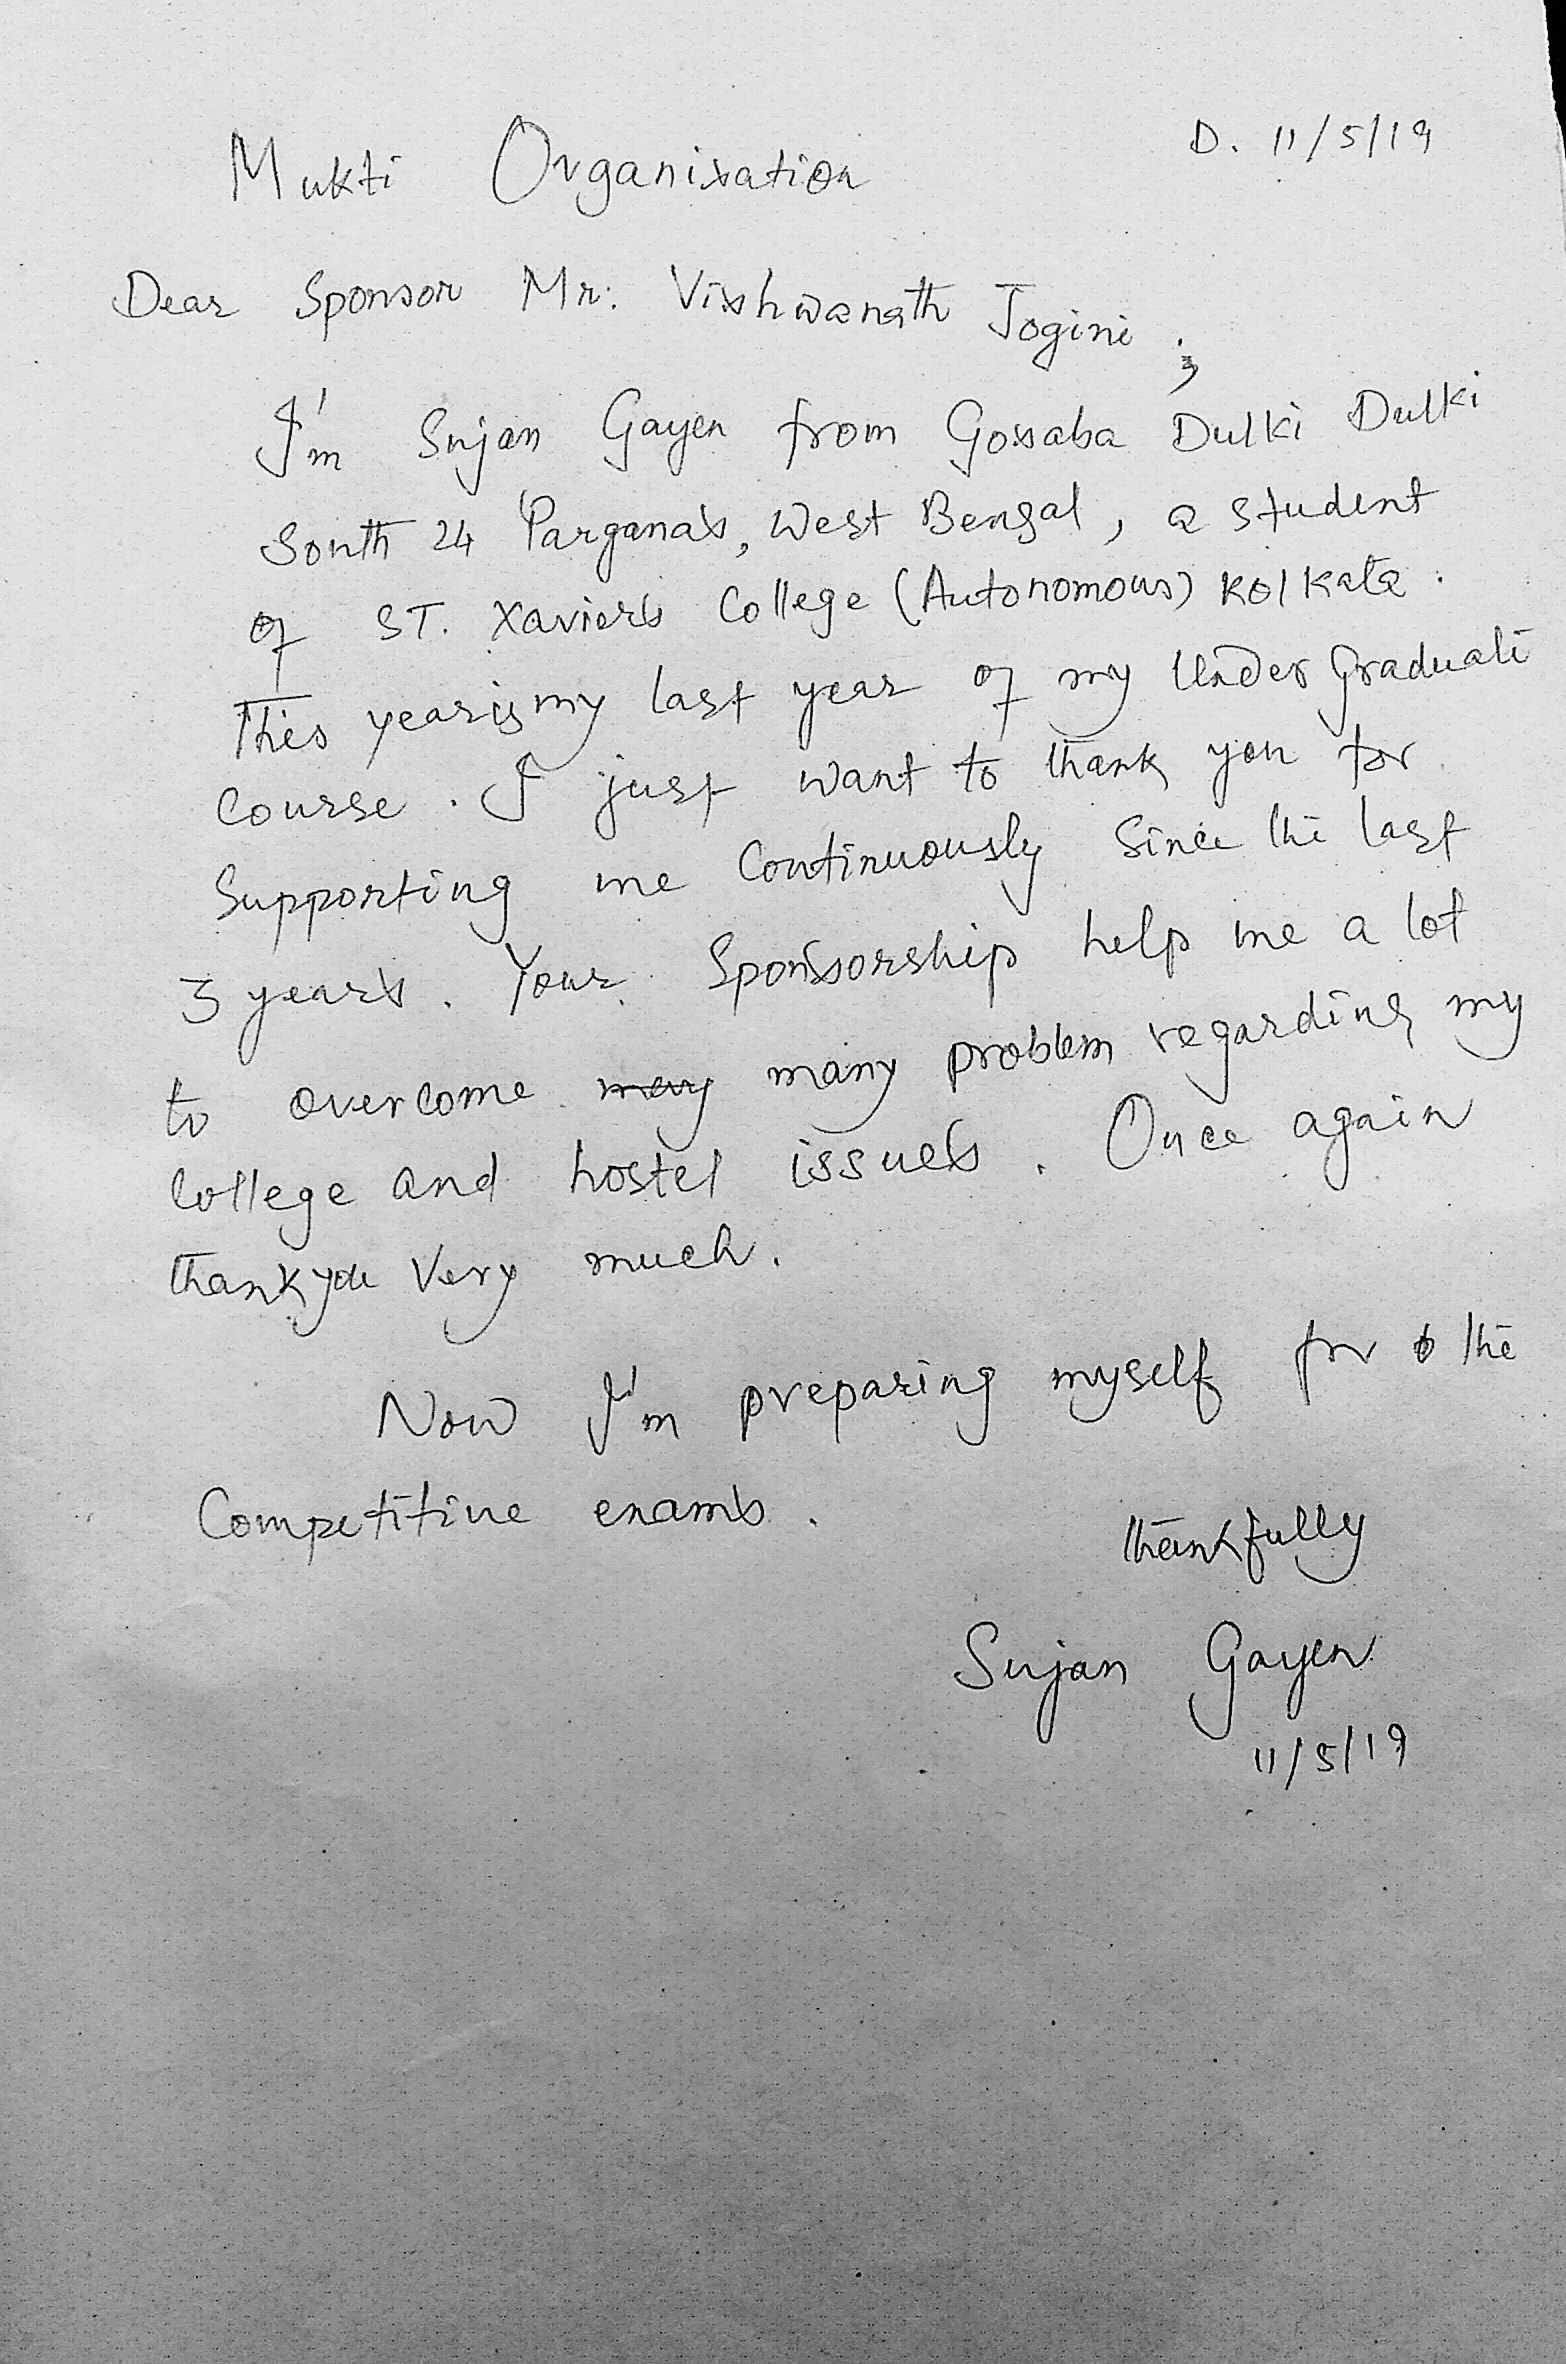 D. 11/5/19
Mukti Organisation
Dear Sponsor Mr. Vishwanath Jogini ;
I'm Sujan Gayen from Gosaba Dulki Dulki
South 24 Parganas, West Bengal, a student
of ST. Xavier's College (Autonomous) Kolkata.
This year is my last year of my Under Graduate
Course. I just want to thank you for
Supporting me Continuously Since the last
3 years. Your Sponsorship help me a lot
to overcome many problem regarding my
College and hostel issues. Once again
thank you Very much.
Now I'm preparing myself for the
Competitive exams.
thankfully
Sujan Gayen
11/5/19